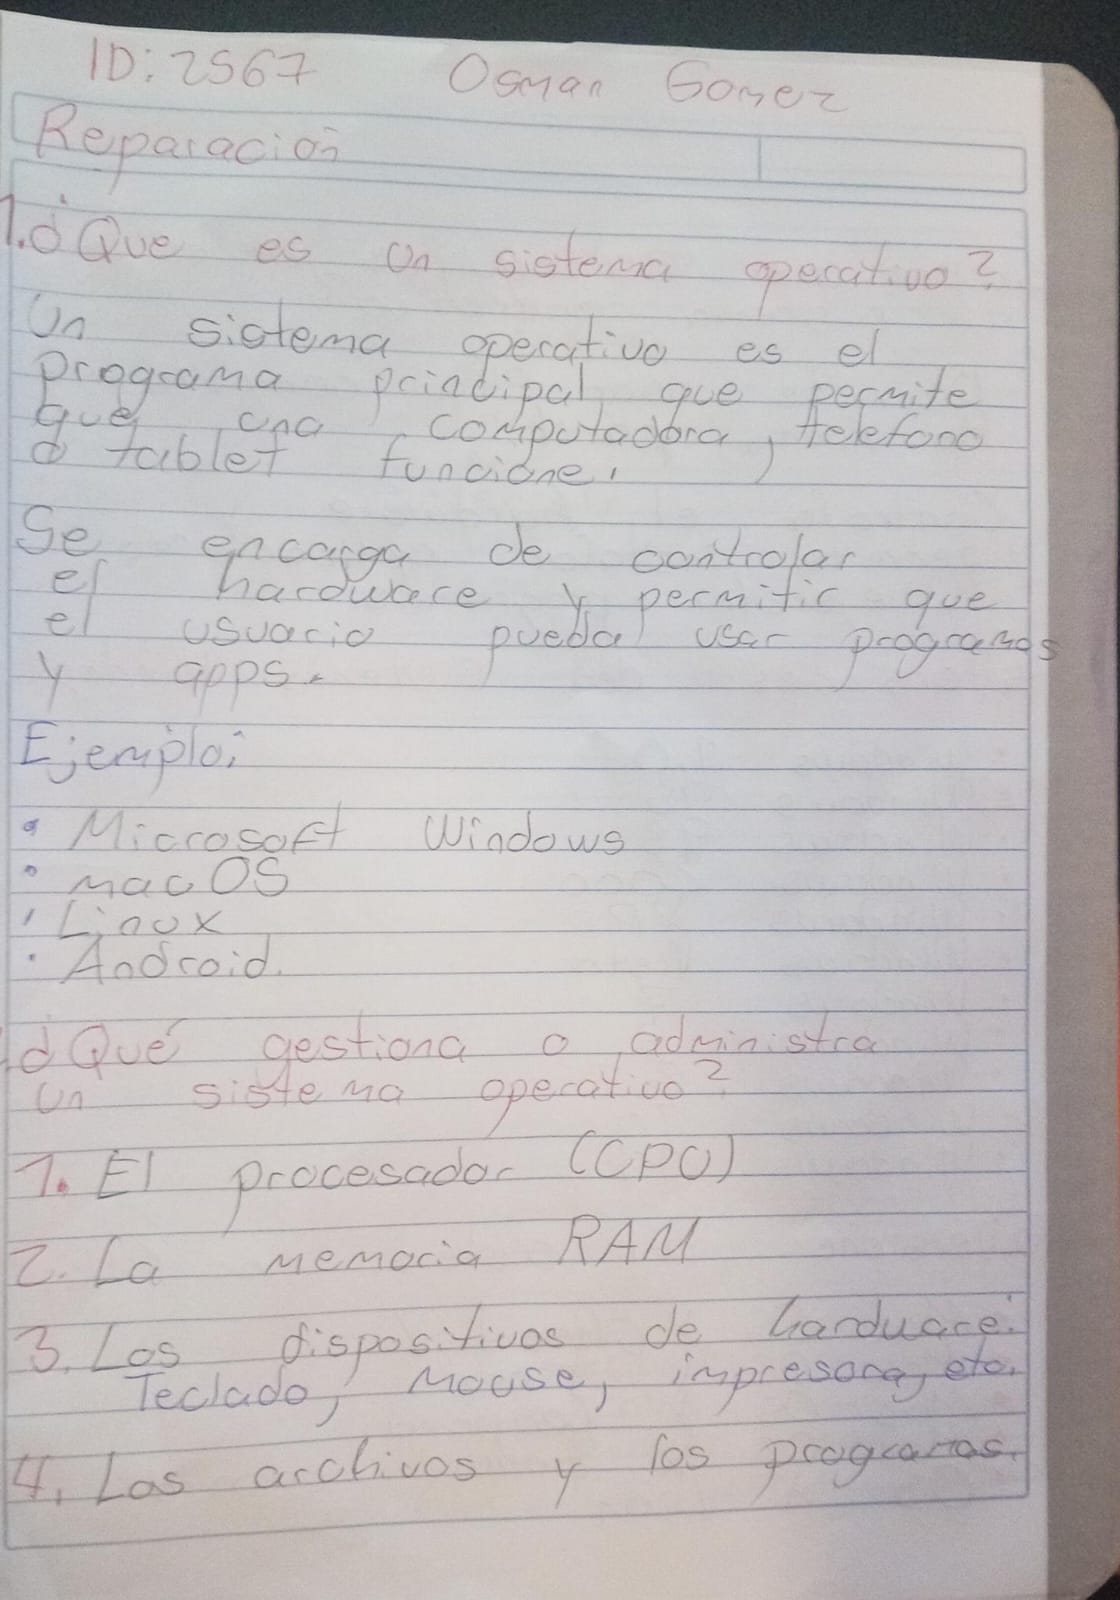 ID: 2567 Osman Gomez
Reparación
1. ¿Que es un sistema operativo?
Un sistema operativo es el
programa principal que permite
que una computadora, telefono
o tablet funcione.
Se encarga de controlar
el hardware y permitir que
el usuario pueda usar programas
y apps.
Ejemplo:
• Microsoft Windows
• mac OS
• Linux
• Android.
¿Qué gestiona o administra
un sistema operativo?
1. El procesador (CPU)
2. La memoria RAM
3. Los dispositivos de harduare:
Teclado, mouse, impresora, etc.
4. Los archivos y los programas.